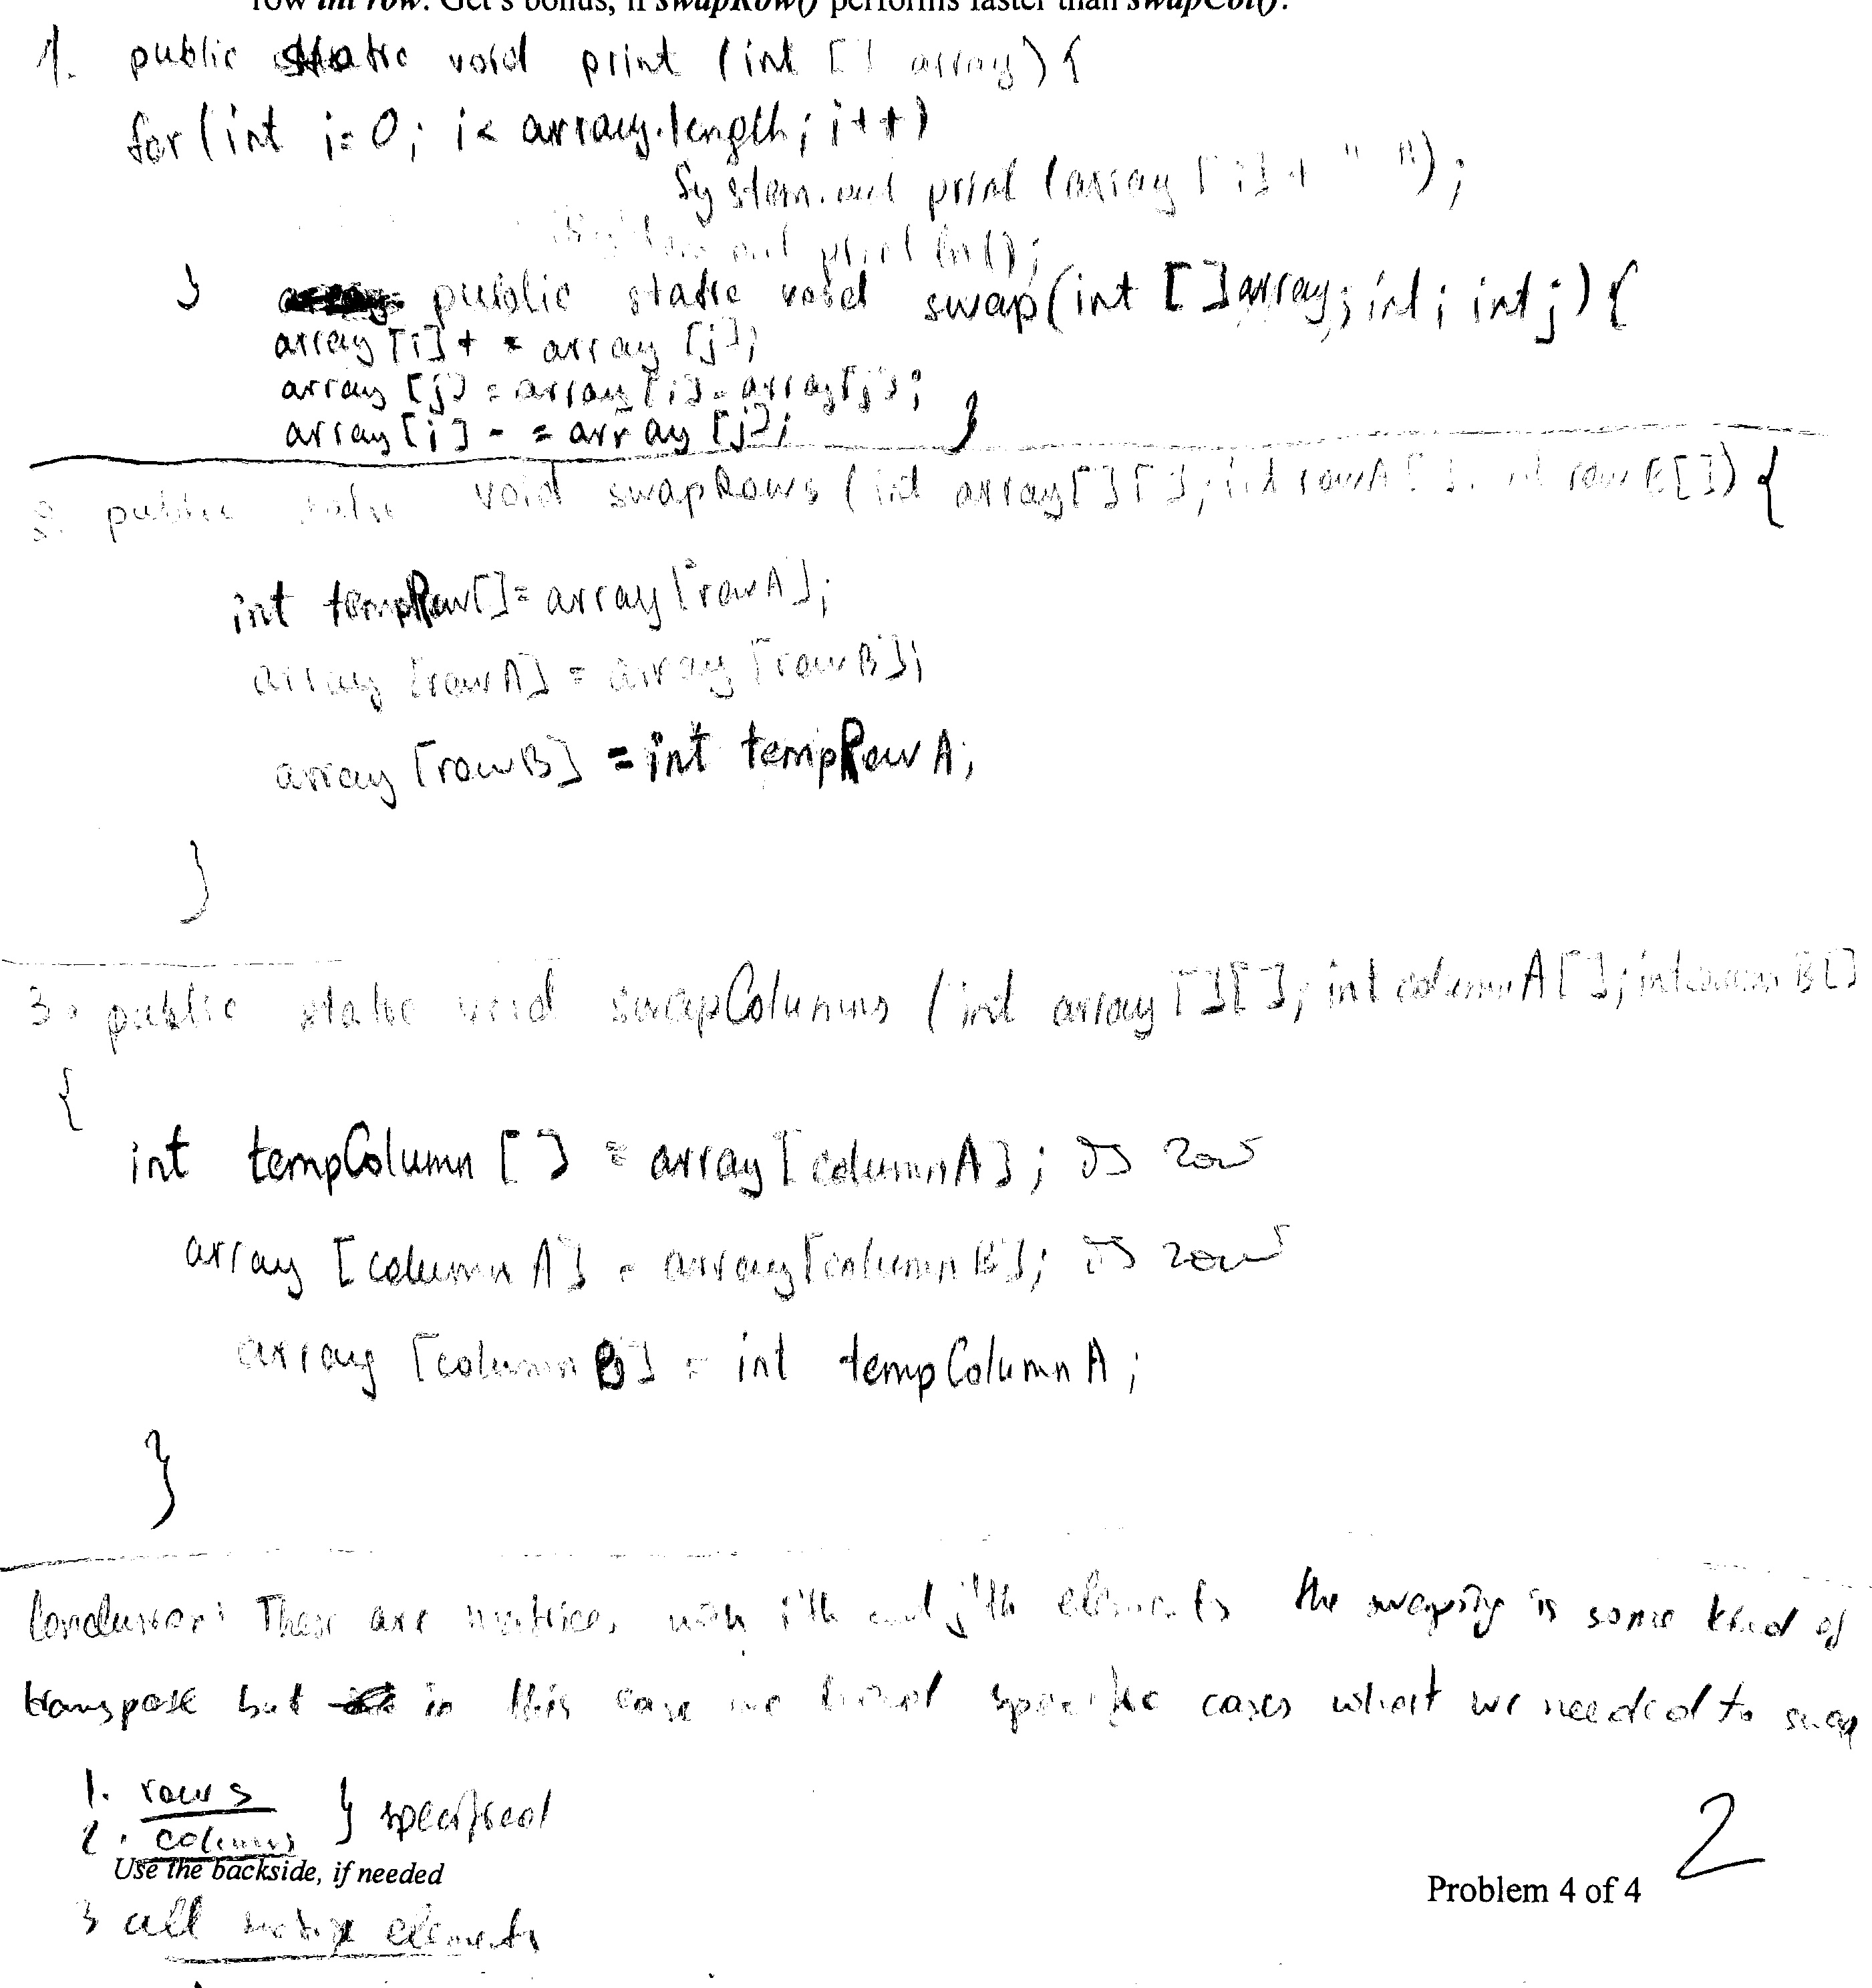 row int row. Get's bonus, if swapRow() performs faster than swapCol().
1. public static void print (int [] array) {
for (int i=0; i< array.length; i++)
System.out print (array [i] + " ");
System out println();
} public static void swap(int [] array; int i int j) {
array [i] + = array [j];
array [j] = array [i] - array[j];
array [i] - = array [j]; }
2. public static void swapRows (int array[][]; int rowA []. int row B[]) {
int tempRow[] = array [rowA];
array [rowA] = array [rowB];
array [rowB] = int tempRow A;
}
3. public static void swapColumns (int array [][]; int columnA []; int column B[]
{
int tempColumn [] = array [columnA]; row
array [column A] = array [column B]; row
array [column B] = int temp Column A;
}
Conclusion: These are matrices i'th and j'th elements the swaping is some kind of
transpose but in this case we specific cases what we needed to swap
1. rows } specified
2. columns
Use the backside, if needed
Problem 4 of 4 2
3 all matrix elements